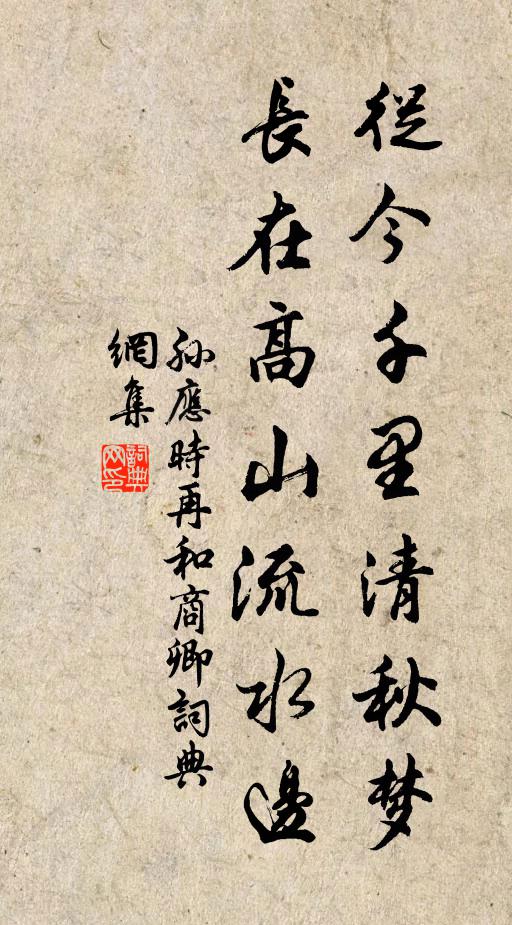 從今千里清秋梦
長在高山流水邊
孙應時再和商卿詞典
網集
詞典
网印